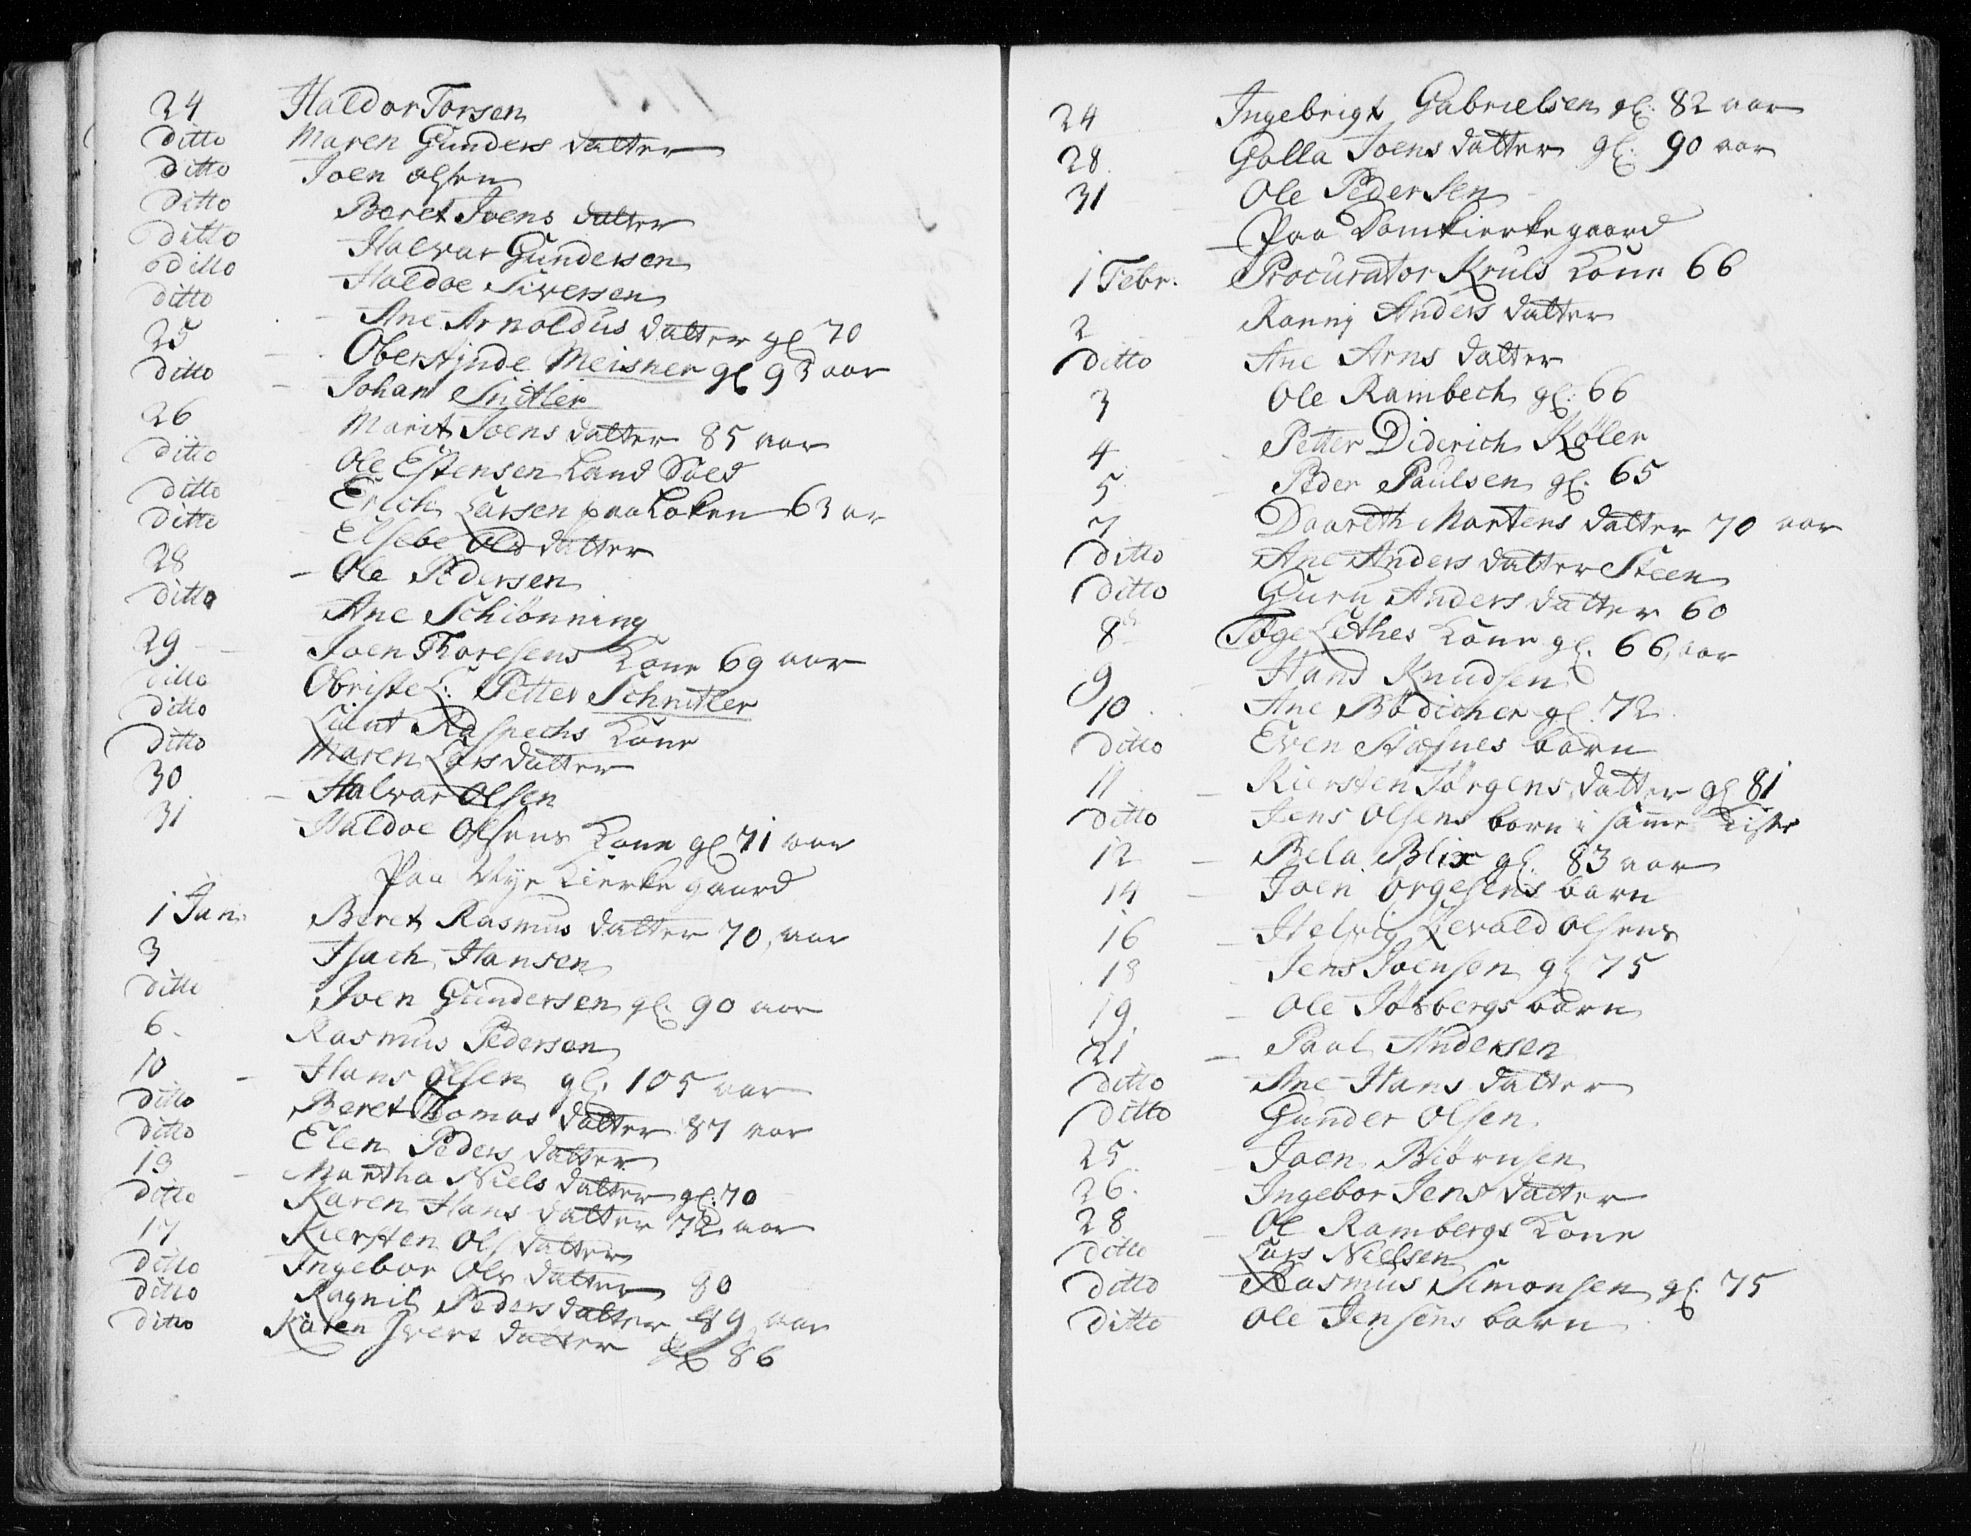 24 Haldor Torsen
ditto Maren Gunders datter
ditto Joen olsen
ditto Beret Joens datter
ditto Halvar Gundersen
ditto Haldoe Siversen
ditto Ane Arnoldus datter gl 70
25 Oberstjnde Meisner gl 93 aar
ditto Johan Snitler
26 Marit Joens datter 85 aar
ditto Ole Estensen Land Sold
ditto Erich Larsen paa Loken 63 ar
ditto Elsebe Ols datter
28 Ole Pedersen
ditto Ane Schiönning
29 Joen Thoresens Kone 69 aar
ditto Obriste L: Petter Schnitler
ditto Lüint Raspechs Kone
ditto Maren Lars datter
30 Halvar Olsen
31 Haldoe Olsens Kone gl 71 aar
Paa Nye Kierke gaard
1 Jan: Beret Rasmus datter 70 aar
3 Isach Hansen
ditto Joen Gundersen gl. 90 aar
6 Rasmus Pedersen
10 Hans olsen gl. 105 aar
ditto Beret Thomas datter 87 aar
ditto Elen Peders datter
13 Martha Niels datter gl. 70
ditto Karen Hans datter 72 aar
17 Kiersten Ols datter
ditto Ingebor Ols datter 80
ditto Ragnil Peders datter 89 aar
ditto Karen Ivers datter gl 86
24 Ingebrigt Gabrielsen gl: 82 aar
28. Golla Joens datter gl: 90 aar
31 Ole Pedersen
Paa Domkierke gaard
1 Febr. Procurator Kruls Kone 66
2 Ranni Anders datter
ditto Ane Arns datter
3 Ole Rambech gl: 66
4 Petter Diderich Köler
5 Peder Paulsen gl: 65
7 Daareth Martens datter 70 aar
ditto Ane Anders datter Steen
ditto Guru Anders datter 60
8 Tøge Lethes Kone gl. 66 aar
9 Hans Knudsen
10 Ane Bødicher gl. 72
ditto Even Næsnes barn
11 Kiersten Jørgens datter gl 81
ditto Jens Olsens barn i samme Kiste
12 Bela Blix gl. 83 aar
14 Joen Orgesens barn
16 Helvig Sevald olsens
18 Jens Joensen gl 75
19 Ole Josbergs barn
21 Paal Andersen
ditto Ane Hans datter
ditto Gunder Olsen
25 Joen Biørnsen
26. Ingebor Jens datter
28 Ol Rambergs Kone
ditto Lars Nielsen
ditto Rasmus Simonsen gl. 75
ditto Ole Jensens barn